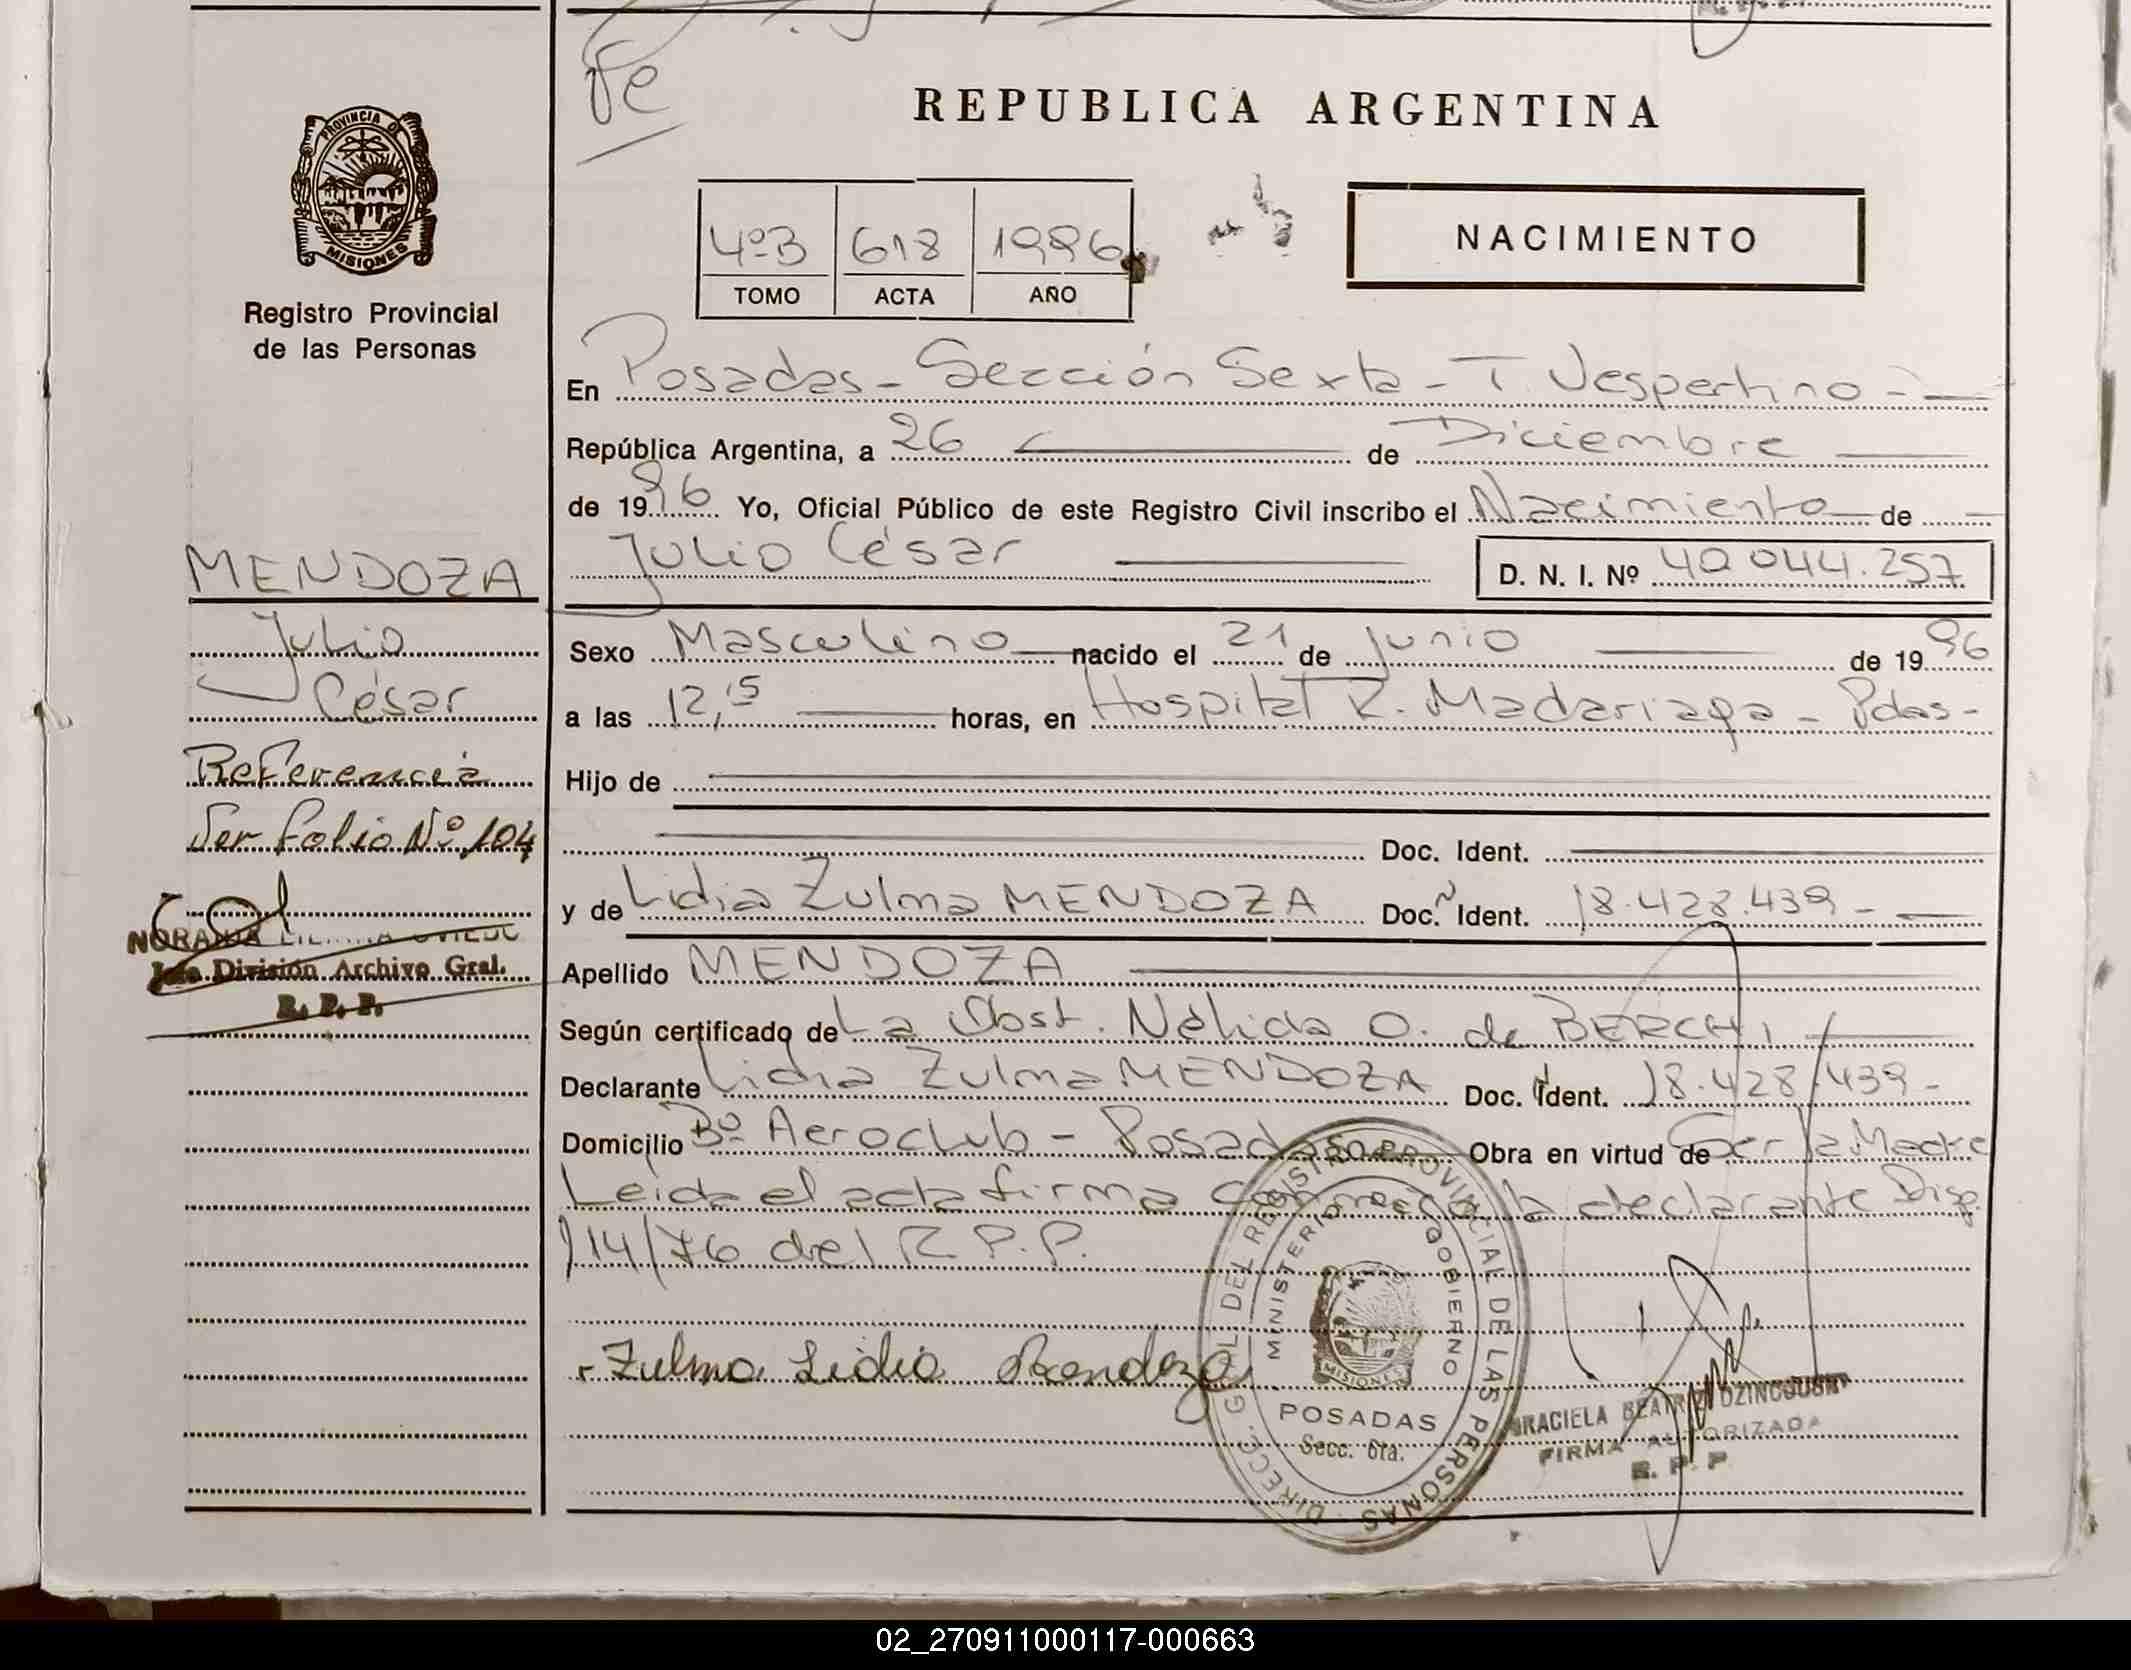 Fe
REPUBLICA ARGENTINA
PROVINCIA D
MISIONES
Registro Provincial
de las Personas
4ºB 618 1996
TOMO ACTA AÑO
NACIMIENTO
En Posadas - Sección Sexta - T. Vespertino -
República Argentina, a 26 de Diciembre
de 1996 Yo, Oficial Público de este Registro Civil inscribo el Nacimiento de
Julio César D. N. I. Nº 40 044.257
MENDOZA
Julio
César
Referencia
Ser folio Nº 104
División Archivo Gral.
R. P. P.
Sexo Masculino nacido el 21 de Junio de 1996
a las 12,15 horas, en Hospital R. Madariaga - Pdas-
Hijo de
Doc. Ident.
y de Lidia Zulma MENDOZA Doc. Ident. 18.428.439 -
Apellido MENDOZA
Según certificado de La Obst. Nélida O. de BERCHI
Declarante Lidia Zulma MENDOZA Doc. Ident. 18.428.439 -
Domicilio Bº Aeroclub - Posadas Obra en virtud de Ser la Madre
Leida el acta firma conmigo la declarante Disp.
114/76 del R.P.P.
Zulma Lidia Mendoza
DIRECC. GRAL DEL REGISTRO PROVINCIAL DE LAS PERSONAS
MINISTERIO DE GOBIERNO
MISIONES
POSADAS
Secc. 6ta.
GRACIELA BEATRIZ
FIRMA AUTORIZADA
R. P. P
02_270911000117-000663